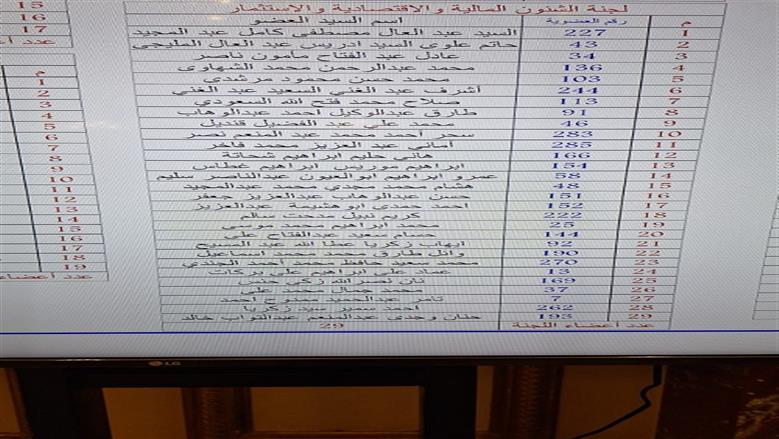 لجنة الشئون المالية والاقتصادية والاستثمار
م رقم العضوية اسم السيد العضو
1 227 السيد عبد العال مصطفى كامل عبد المجيد
2 43 حاتم علوى السيد ادريس عبد العال المليجي
3 34 عادل عبد الفتاح مأمون ناصر
4 136 محمد عبدالرحمن محمد الشهاوى
5 103 محمد حسن محمود مرشدى
6 244 أشرف عبد الغني السعيد عبد الغني
7 113 صلاح محمد فتح الله السعودي
8 91 طارق عبدالوكيل احمد عبدالوهاب
9 46 محمد علي عبد الفضيل قنديل
10 283 سحر احمد محمد عبد المنعم نصر
11 285 أماني عبد العزيز محمد فاخر
12 166 هاني حليم ابراهيم شحاتة
13 154 ابراهيم موريس ابراهيم غطاس
14 58 عمرو ابراهيم ابو العيون عبدالناصر سليم
15 48 هشام محمد مجدي محمد عبدالمجيد
16 151 حسن عبدالوهاب عبدالعزيز جعفر
17 152 احمد حمدى ابو هشيمة عبدالعزيز
18 222 كريم نبيل مدحت سالم
19 25 محمد ابراهيم محمد موسى
20 144 حسام سعيد عبدالفتاح علي
21 92 ايهاب زكريا عطا الله عبد المسيح
22 190 وائل طارق محمد محمد اسماعيل
23 270 محمد سعيد حافظ محمد احمد الجندي
24 13 عماد علي ابراهيم علي بركات
25 169 نان نصرالله زكي حنس
26 37 محمد جمال محمد علي
27 7 تامر عبدالحميد ممدوح احمد
28 262 احمد سمير سيد زكريا
29 193 حنان وجدى عبدالمنعم عبدالتواب خالد
عدد أعضاء اللجنة 29
15
16
17
عدد أعضاء
م
1
2
3
4
5
6
7
8
9
10
11
12
13
14
15
16
17
18
19
عدد أعضاء
LG